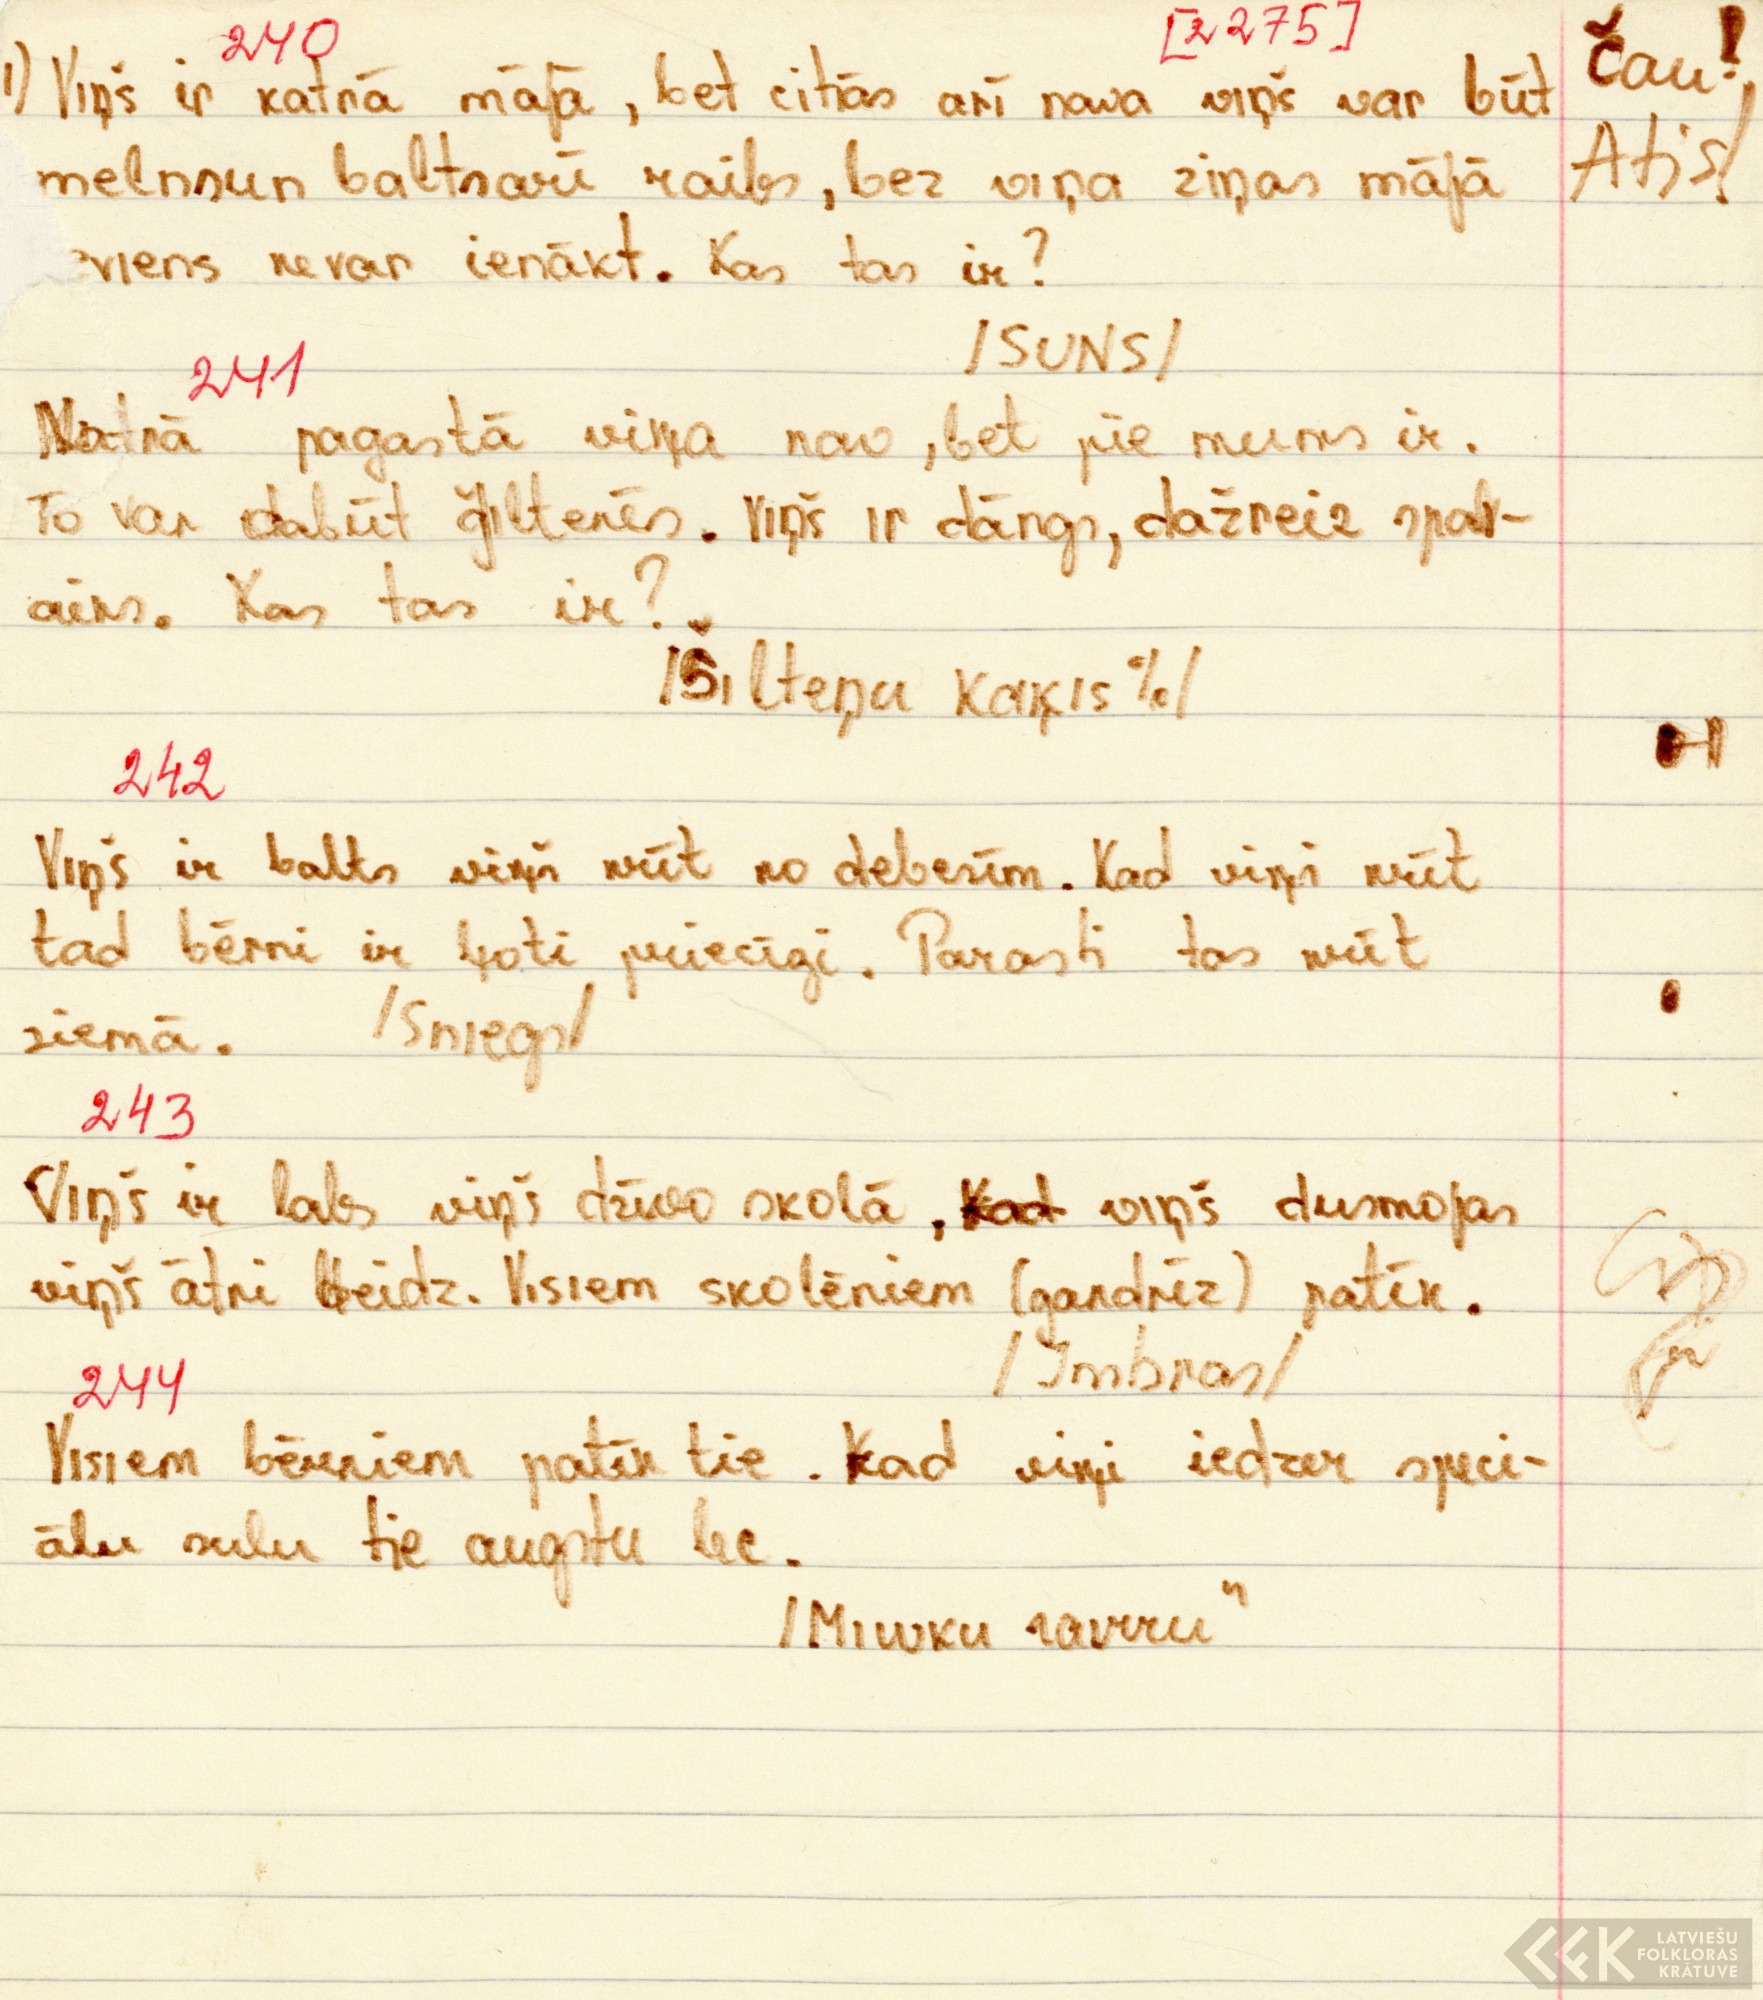 240 [2275]
1) Viņš ir katrā mājā, bet citās arī nava viņš var būt Čau!
melnsun baltsarī raibs, bez viņa ziņas mājā Atis!
eviens nevar ienākt. Kas tas ir?
/SUNS/
241
Katrā pagastā viņa nav, bet pie mums ir.
To var dabūt Šilterēs. Viņš ir dārgs, dažreiz spal-
ains. Kas tas ir?
/Šilteņu kaķis %/
242
Viņš ir balts viņi krīt no debesīm. Kad viņi krīt
tad bērni ir ļoti priecīgi. Parasti tas krīt
ziemā. /Sniegs/
243
Viņš ir labs viņš dzīvo skolā, kad viņš dusmojas
viņš ātri beidz. Visiem skolēniem (gandrīz) patīk.
/Imbras/
244
Visiem bērniem patīk tie. Kad viņi iedzer speci-
ālu sulu tie augstu lec.
LATVIEŠU
FOLKLORAS
KRĀTUVE